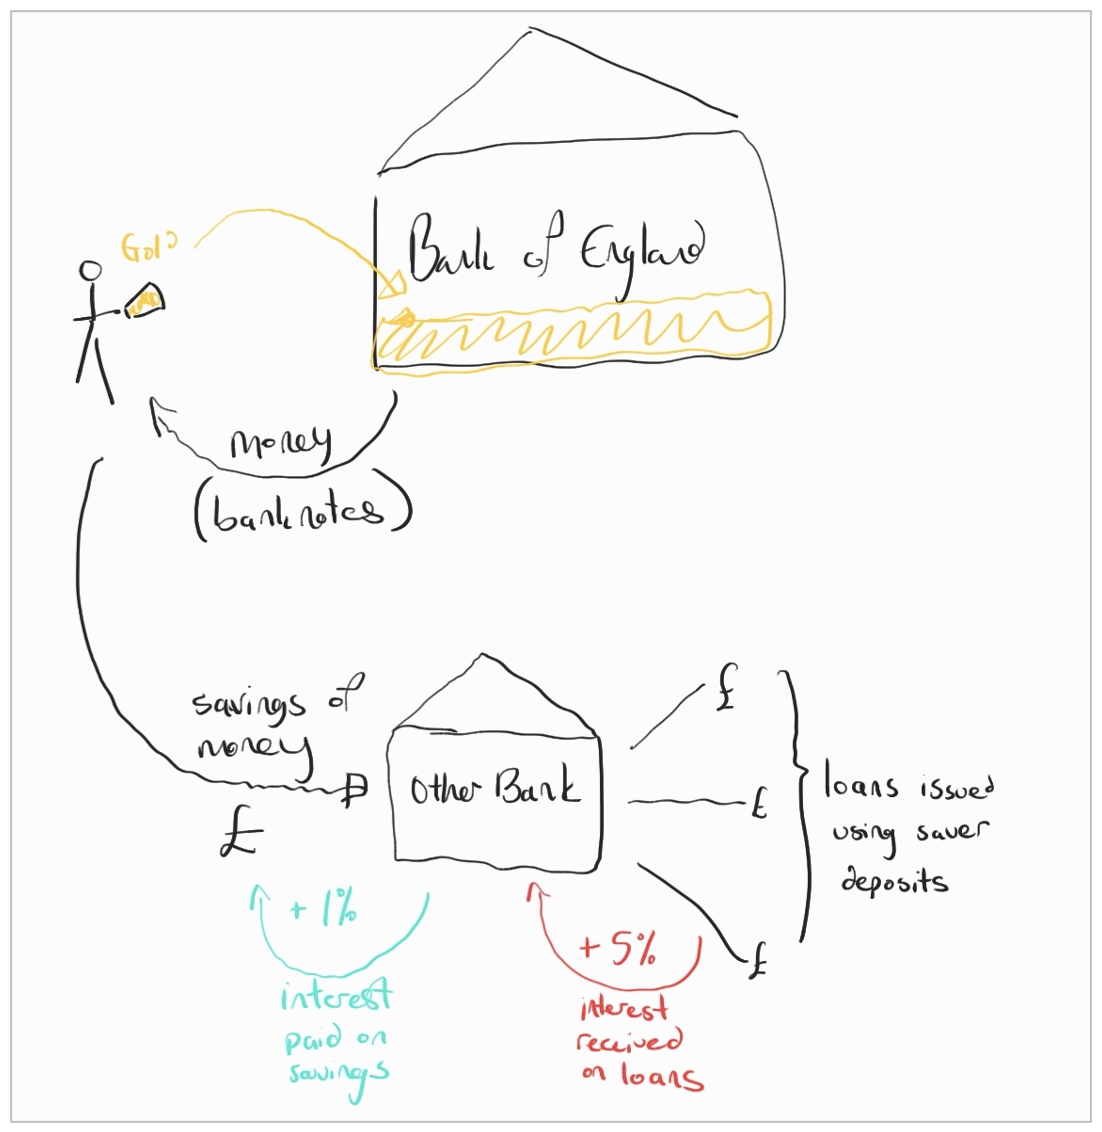 Gold
Bank of England
money
(banknotes)
savings of
money
£
Other Bank
£
£
£
loans issued
using saver
deposits
+ 1%
interest
paid on
savings
+ 5%
interest
received
on loans